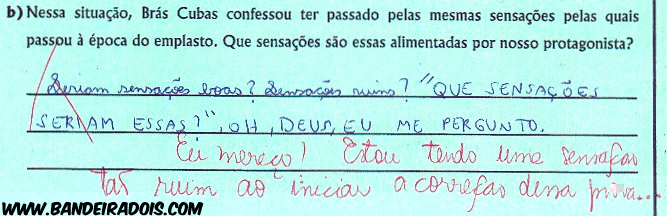 b) Nessa situação, Brás Cubas confessou ter passado pelas mesmas sensações pelas quais
passou à época do emplasto. Que sensações são essas alimentadas por nosso protagonista?
Seriam sensações boas? Sensações ruins? "QUE SENSAÇÕES
SERIAM ESSAS?", OH, DEUS, EU ME PERGUNTO.
Eu mereço! Estou tendo uma sensação
tão ruim ao iniciar a correção dessa prova...
WWW.BANDEIRADOIS.COM